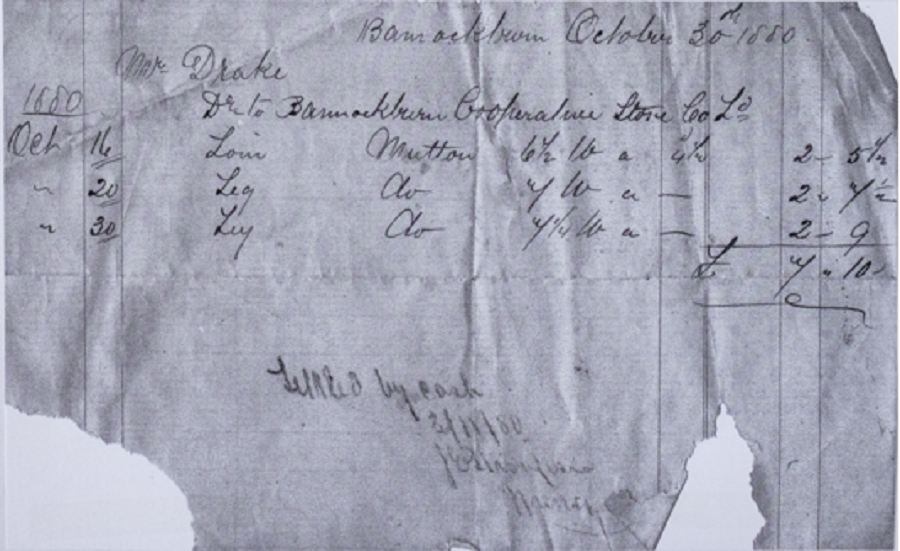 Bannockburn October 30th 1880
Mr Drake
1880 Dr to Bannockburn Cooperative Store Co Ld
Oct 16 Loin Mutton 6½ lb a 4½ 2 - 5½
" 20 Leg do 7 lb a — 2 " 7½
" 30 Leg do 7¼ lb a — 2 - 9
£ 7 " 10
Settled by cash
2/11/80